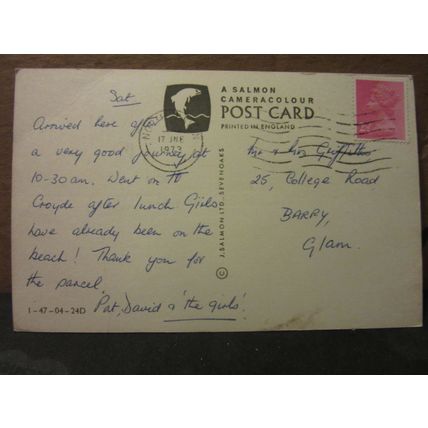 Sat
Arrived here after
a very good journey at
10-30am. Went on to
Croyde after lunch Girls
have already been on the
beach! Thank you for
the parcel
Pat, David & 'the girls'.
1-47-04-24D
17 JNE
1973
A SALMON
CAMERACOLOUR
POST CARD
PRINTED IN ENGLAND
© J. SALMON LTD., SEVENOAKS
Mr & Mrs Griffiths
25, College Road
BARRY,
Glam.